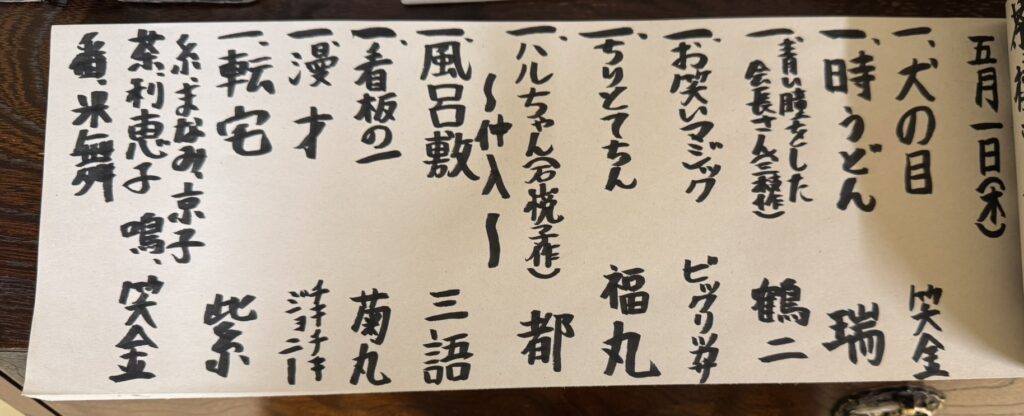 五月一日(木)
一、犬の目 笑金
一、時うどん 瑞
一、青い瞳をした
会長さん(三語作) 鶴二
一、お笑いマジック ビックリツカサ
一、ちりとてちん 福丸
一、ハルちゃん(石悦子作) 都
〜仲入〜
一、風呂敷 三語
一、看板の一 菊丸
一、漫才 チキチキ
ジョニー
一、転宅 紫
糸、まなみ、京子
茶、利恵子 鳴、笑金
番、米舞